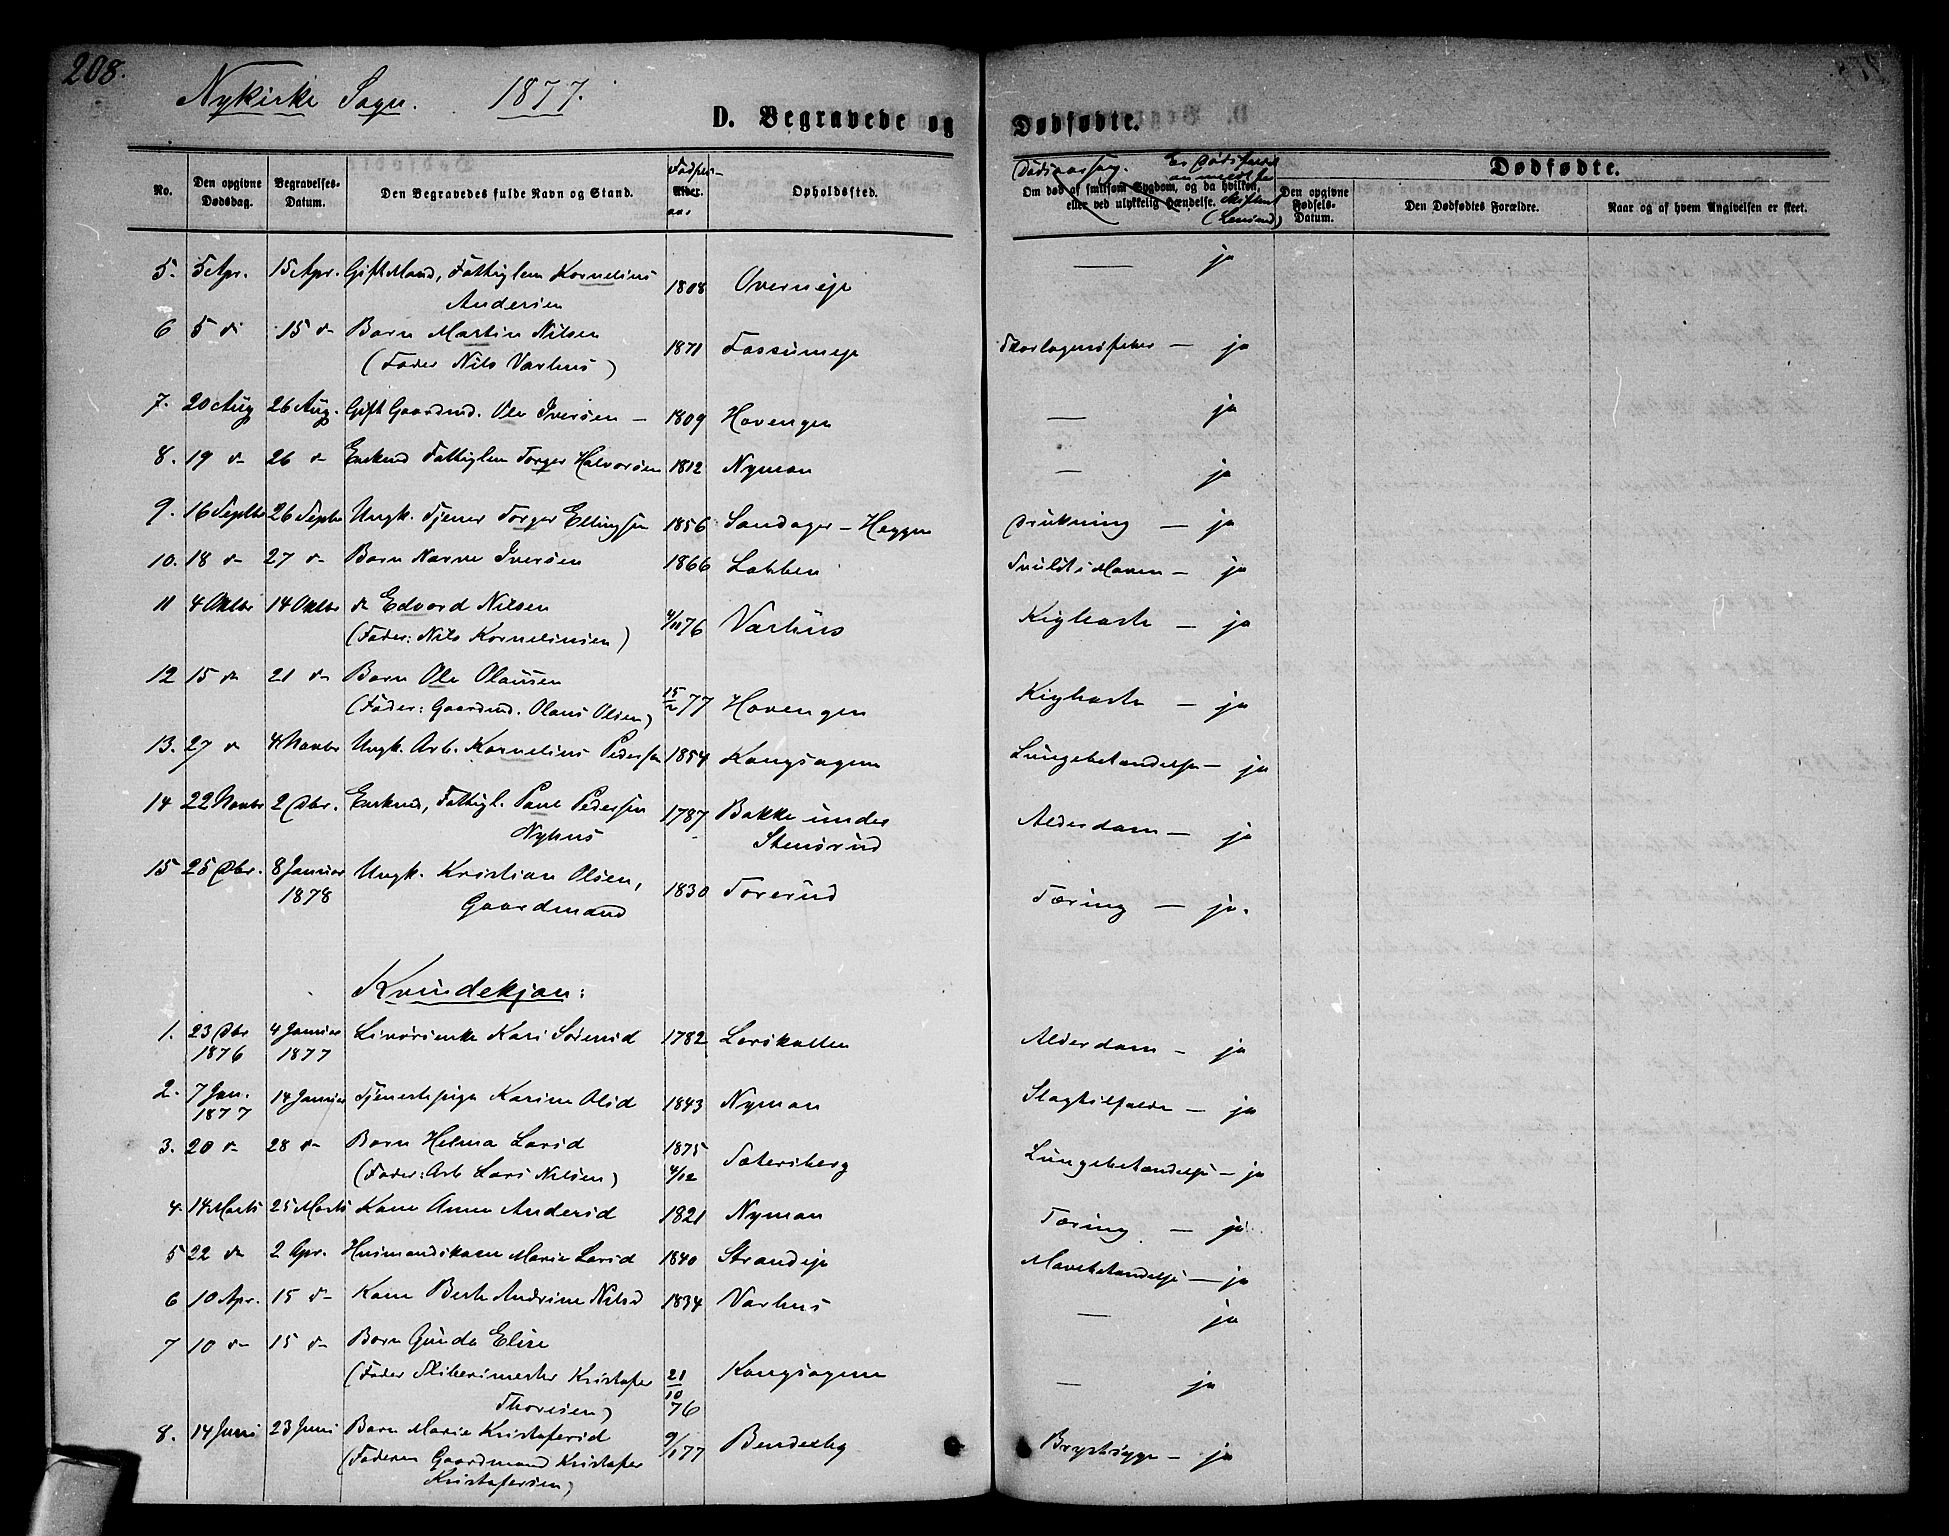 208.
Nykirke Sogn. 1877.
D. Begravede og Dødfødte.
No.
Den opgivne Dødsdag.
Begravelses-Datum.
Den Begravedes fulde Navn og Stand.
Fødsels-
Alder.
aar
Opholdssted.
Dødsaarsag.
Om død af smitsom Sygdom, og da hvilken,
eller ved ulykkelig Hændelse.
Er Dødsfaldet
anmeldt for
Skifteret
(Lensmd)
Dødfødte.
Den opgivne Fødsels-Datum.
Den Dødfødtes Forældre.
Naar og af hvem Angivelsen er skeet.
5. 5 Apr. 15 Apr. Gift Mand, Fattiglem Kornelius
Andersen 1808 Overneje — ja
6 5 d. 15 d. Barn Martin Nilsen
(Fader Nils Varhus) 1871 Fossumeje — ja
7. 20 Aug 26 Aug. Gift Gaardmd. Ole Iversen — 1809 Hovengen — ja
8. 19 d. 26 d. Enkmd Fattiglem Torger Halvorsen 1812 Nyman — ja
9. 16 Septbr 26 Septbr Ungk. Tjener Torger Ellingsen 1856 Sandager – Heggen Drukning — ja
10. 18 d. 27 d. Barn Narve Iversen 1866 Løkken — ja
11 4 Oktbr 14 Oktbr d. Edvard Nilsen
(Fader: Nils Kornelinsen) 4/11 76 Varhus Kighoste — ja
12 15 d. 21 d. Barn Ole Olausen
(Fader: Gaardmd. Olaus Olsen) 15/2 77 Hovengen Kighoste — ja
13. 27 d. 4 Novbr Ungk. Arb. Kornelius Pedersen 1854 Kongsagene Lungebetændelse — ja
14 22 Novbr 2 Dbr. Enkmd, Fattigl. Paul Pedersen
Nyhus 1787 Bakke under
Stensrud Alderdom — ja
15 25 Dbr. 8 Januar
1878 Ungk. Kristian Olsen,
Gaardmand 1830 Torerud Tæring — ja.
Kvindekjøn:
1. 23 Dbr
1876 4 Januar
1877 Kari Sørensd 1782 Lerskallen Alderdom — ja
2. 7 Jan.
1877 14 Januar Tjenestepige Karine Olsd 1843 Nyman Slagtilfælde — ja
3. 20 d. 28 d. Barn Helma Larsd
(Fader: Arb Lars Nilsen) 1875
4/12 Sætersberg Lungebetændelse — ja
4. 14 Marts 25 Marts Kone Anne Andersd 1821 Nyman Tæring — ja
5 22 d. 2 Apr. Husmandskone Marie Larsd 1840 Strandeje Mavebetændelse — ja
6 10 Apr. 15 d. Kone Berte Andrine Nilsd 1834 Varhus — ja
7 10 d. 15 d. Barn Gunda Elise
(Fader Sliberimester Kristofer
Thoresen) 21/10 76 Kongsagene — ja
8. 14 Juni 23 Juni Barn Marie Kristofersd
(Faderen Gaardmand Kristofer
Kristofersen) 9/1 77 Bendexby Brystsyge — ja